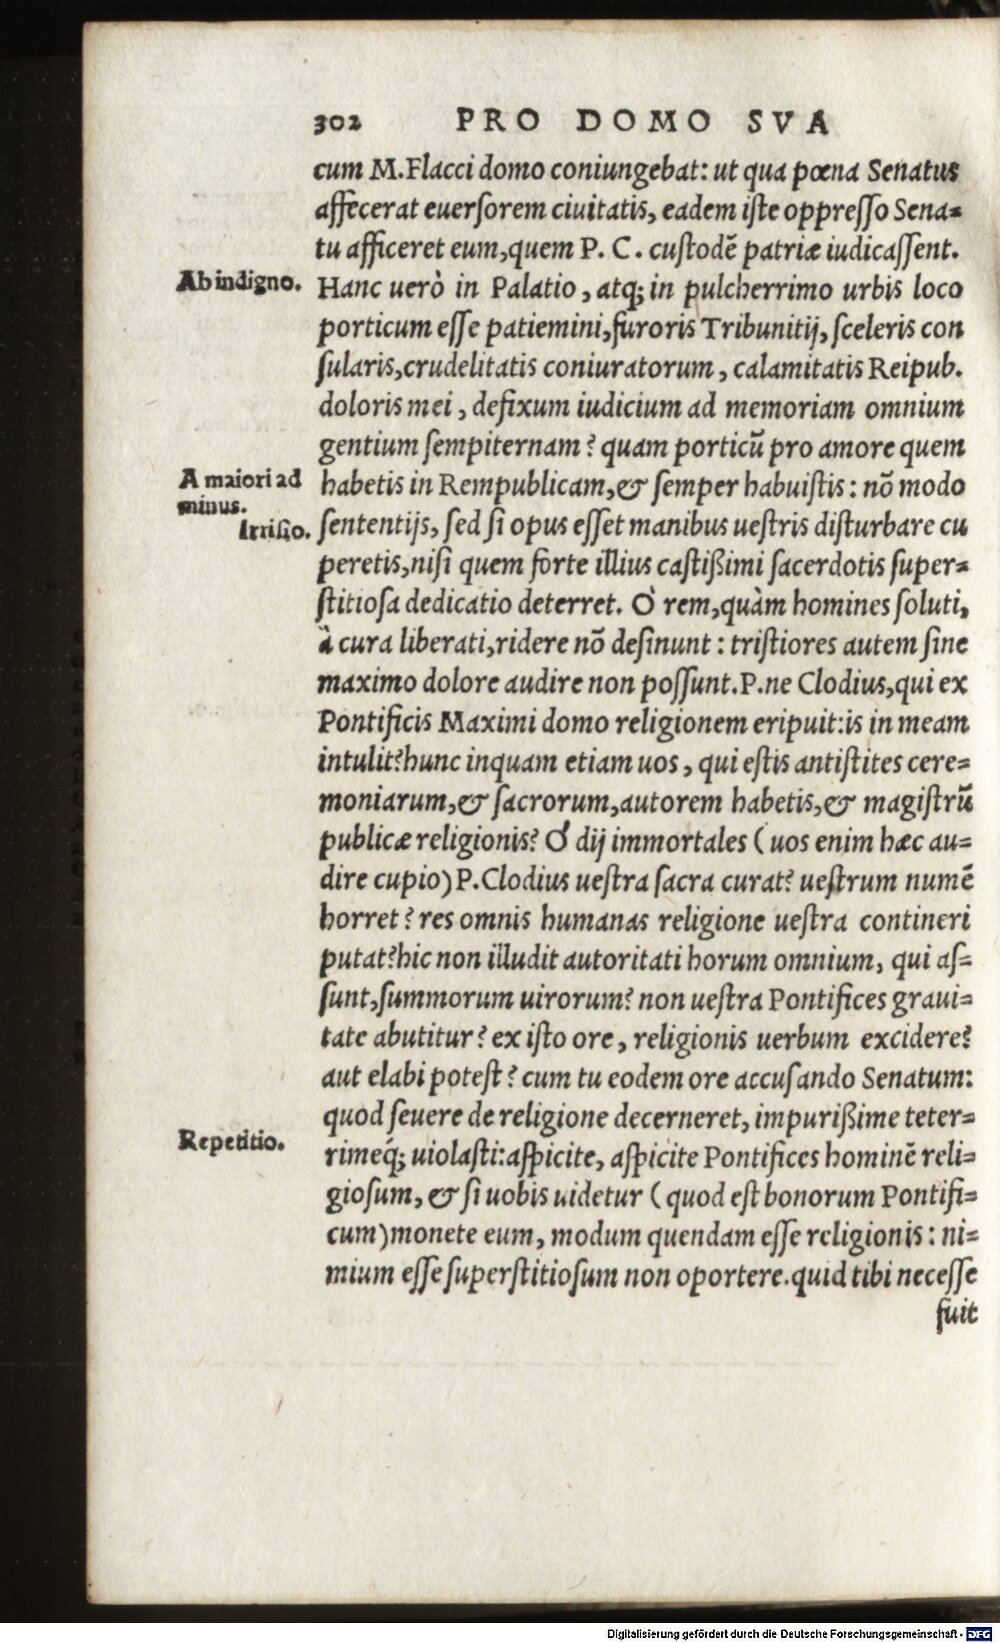 302 PRO DOMO SVA
cum M.Flacci domo coniungebat: ut qua pœna Senatus
affecerat euerſorem ciuitatis, eadem iſte oppreſſo Sena=
tu afficeret eum,quem P. C. cuſtodē patriæ iudicaſſent.
Ab indigno.
Hanc uerò in Palatio, atq; in pulcherrimo urbis loco
porticum eſſe patiemini,furoris Tribunitij, ſceleris con
ſularis,crudelitatis coniuratorum, calamitatis Reipub.
doloris mei, defixum iudicium ad memoriam omnium
gentium ſempiternam? quam porticū pro amore quem
A maiori ad
minus.
habetis in Rempublicam,& ſemper habuiſtis: nō modo
Irriſio.
ſententijs, ſed ſi opus eſſet manibus ueſtris diſturbare cu
peretis,niſi quem forte illius caſtißimi ſacerdotis ſuper=
ſtitioſa dedicatio deterret. Ò rem,quàm homines ſoluti,
à cura liberati,ridere nō deſinunt: triſtiores autem ſine
maximo dolore audire non poſſunt.P.ne Clodius,qui ex
Pontificis Maximi domo religionem eripuit:is in meam
intulit?hunc inquam etiam uos, qui eſtis antiſtites cere=
moniarum,& ſacrorum,autorem habetis,& magiſtrū
publicæ religionis? Ó dij immortales (uos enim hæc au=
dire cupio) P.Clodius ueſtra ſacra curat? ueſtrum numē
horret? res omnis humanas religione ueſtra contineri
putat?hic non illudit autoritati horum omnium, qui aſ=
ſunt,ſummorum uirorum? non ueſtra Pontifices graui=
tate abutitur? ex iſto ore, religionis uerbum excidere?
aut elabi poteſt? cum tu eodem ore accuſando Senatum:
quod ſeuere de religione decerneret, impurißime teter=
Repetitio.
rimeq́; uiolaſti:aſpicite, aſpicite Pontifices hominē reli=
gioſum, & ſi uobis uidetur (quod eſt bonorum Pontifi=
cum)monete eum, modum quendam eſſe religionis: ni=
mium eſſe ſuperſtitioſum non oportere.quid tibi neceſſe
fuit
Digitalisierung gefördert durch die Deutsche Forschungsgemeinschaft - DFG